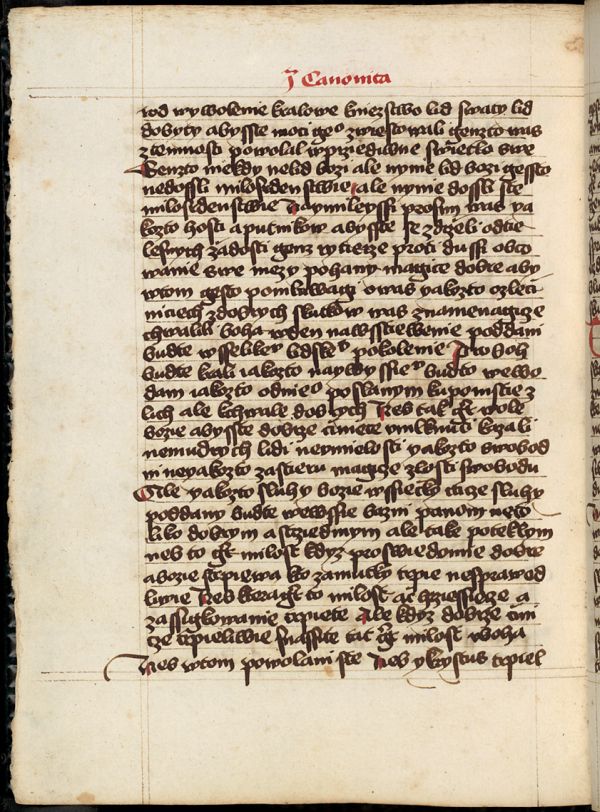 j Canonica
rod wywolenie kralowe kniezstwo lid swaty lid
dobyty abysste moci geº zwiestowali genzto was
ztemnosti powolal wprziediwne swietlo swe
Genzto niekdy nelid bozi ale nynie lid bozi gessto
nedossli milosidenstwie ale nynie dossli ste
milosidenstwie Naymileyssi prosim was ya
kozto hosti a putnikow abysste se zdrzeli odtie
lesnych zadosti genz rytierze proti dussi obco
wanie swe mezy pohany magice dobre aby
wtom gesto pomluwagi owas yakozto ozleci
niciech zdobrych skutkow was znamenagice
chwalili boha wden nawsstiewenie poddani
budte wsselikeº lidskeº pokolenie pro boh
budte krali iakozto naywyssieº budto wewo
dam iakozto odnieº poslanym kupomstie z
lich ale kchwale dobrych Nes tak gt wole
bozie abysste dobrze ciniece vmlknuti kzali
nemudrych lidi neymielosti yakozto swobod
ni neyakozto zastieru magice zlosti swobodu
Ale yakozto sluhy bozie wssiecky ctiee sluhy
poddany budte wewssie bazni panom neto
liko dobrym a stziedmym ale take poteklym
nes to gt milost kdyz proswiedomie dobre
abozie strpiewa ko zamutky trpie nesprawed
liwie Nes kteragt to milost ac hrziessiece a
zassigkowanie trpiete Ale kdyz dobrze cini
ce trpieliwie snassite tat gt milost uboha
Nes wtom powolani ste Nes ykrystus trpiel